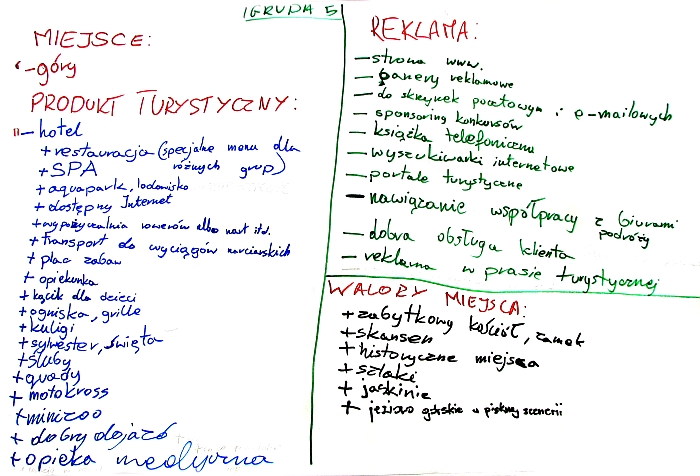 GRUPA 5
MIEJSCE:
-góry
PRODUKT TURYSTYCZNY:
- hotel
+ restauracja (specjalne menu dla
różnych grup)
+ SPA
+ aquapark, lodowisko
+ dostępny Internet
+ wypożyczalnia rowerów albo nart itd.
+ transport do wyciągów narciarskich
+ plac zabaw
+ opiekunka
+ kącik dla dzieci
+ ogniska, grille
+ kuligi
+ sylwester, święta
+ śluby
+ quady
+ motokross
+ minizoo
+ dobry dojazd
+ opieka medyczna
REKLAMA:
- strona www.
- banery reklamowe
- do skrzynek pocztowych i e-mailowych
- sponsoring konkursów
- książka telefoniczna
- wyszukiwarki internetowe
- portale turystyczne
- nawiązanie współpracy z biurami
podróży
- dobra obsługa klienta
- reklama w prasie turystycznej
WALORY MIEJSCA:
+ zabytkowy kościół, zamek
+ skansen
+ historyczne miejsca
+ szlaki
+ jaskinie
+ jezioro górskie w pięknej scenerii